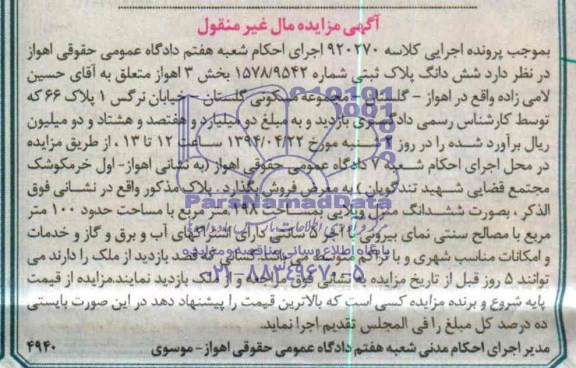 آگهی مزایده مال غیر منقول
بموجب پرونده اجرایی کلاسه ۹۲۰۲۷۰ اجرای احکام شعبه هفتم دادگاه عمومی حقوقی اهواز
در نظر دارد شش دانگ پلاک ثبتی شماره ۱۵۷۸/۹۵۴۲ بخش ۳ اهواز متعلق به آقای حسین
لامی زاده واقع در اهواز - گلستان - مجموعه مسکونی گلستان - خیابان نرگس ۱ پلاک ۶۶ که
توسط کارشناس رسمی دادگستری بازدید و به مبلغ دو میلیارد و هفتصد و هشتاد و دو میلیون
ریال برآورد شده را در روز ۲ شنبه مورخ ۱۳۹۴/۰۴/۲۲ ساعت ۱۲ تا ۱۳، از طریق مزایده
در محل اجرای احکام شعبه ۷ دادگاه عمومی حقوقی اهواز (به نشانی اهواز- اول خرمکوشک
مجتمع قضایی شهید تندگویان) به معرض فروش بگذارد. پلاک مذکور واقع در نشانی فوق
الذکر، بصورت ششدانگ منزل ویلایی بمساحت ۱۹۸ متر مربع با مساحت حدود ۱۰۰ متر
مربع با مصالح سنتی نمای بیرونی آجر ۵ سانتی دارای اشتراکهای آب و برق و گاز و خدمات
و امکانات مناسب شهری و با تراکم متوسط می باشد. کسانی که قصد بازدید از ملک را دارند می
توانند ۵ روز قبل از تاریخ مزایده به نشانی فوق مراجعه و از ملک بازدید نمایند.مزایده از قیمت
پایه شروع و برنده مزایده کسی است که بالاترین قیمت را پیشنهاد دهد در این صورت بایستی
ده درصد کل مبلغ را فی المجلس تقدیم اجرا نماید.
مدیر اجرای احکام مدنی شعبه هفتم دادگاه عمومی حقوقی اهواز - موسوی ۴۹۴۰
ParsNamadData
پایگاه اطلاع رسانی مناقصه و مزایده
۰۲۱-۸۸۳۴۹۶۷۰-۵